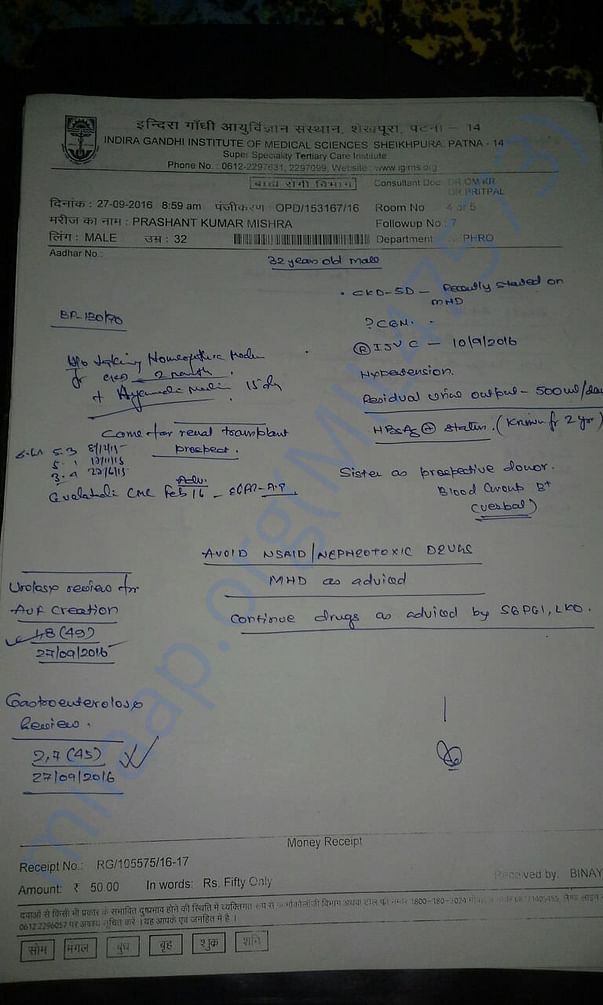 इन्दिरा गाँधी आयुर्विज्ञान संस्थान, शेखपूरा, पटना - 14
INDIRA GANDHI INSTITUTE OF MEDICAL SCIENCES SHEIKHPURA, PATNA - 14
Super Speciality Tertiary Care Institute
Phone No.: 0612-2297631, 2297099, Website: www.igims.org
बाह्य रोगी विभाग
Consultant Doc: DR OM KR
DR PRITPAL
दिनांक : 27-09-2016 8:59 am पंजीकरण : OPD/153167/16 Room No 4 of 5
मरीज का नाम : PRASHANT KUMAR MISHRA Followup No : 7
लिंग : MALE उम्र : 32 Department PHRO
Aadhar No.:
32 years old male
• CKD-5D - Recently started on
MHD
BP-130/70
? CGN.
(R) IJV C - 10/9/2016
H/o taking Homeopathic
for CKD - 2 month
+ 15 day
Hypertension.
Residual urine output - 500 ml/day
HBsAg (+) status. (Known for 2 yr)
Come for renal transplant
prospect.
5.3
5.1
Feb 16
Sister as prospective donor.
Blood Group B+
(verbal)
AVOID NSAID/NEPHROTOXIC DRUGS
MHD as adviced
Continue drugs as adviced by SGPGI, LKO.
Urology review for
AVF Creation
48 (49)
27/09/2016
Gastroenterology
Review.
2,7 (45)
27/09/2016
Money Receipt
Receipt No.: RG/105575/16-17 Received by. BINAY
Amount: ₹ 50.00 In words: Rs. Fifty Only
दवाओं से किसी भी प्रकार के संभावित दुष्प्रभाव होने की स्थिति में व्यक्तिगत रूप से फार्माकोलॉजी विभाग अथवा टोल फ्री नम्बर 1800-180-3024
0612 2296057 पर अवश्य सूचित करें। यह आपके एवं जनहित में है।
सोम मंगल बुध बृह शुक्र शनि
milaap.org